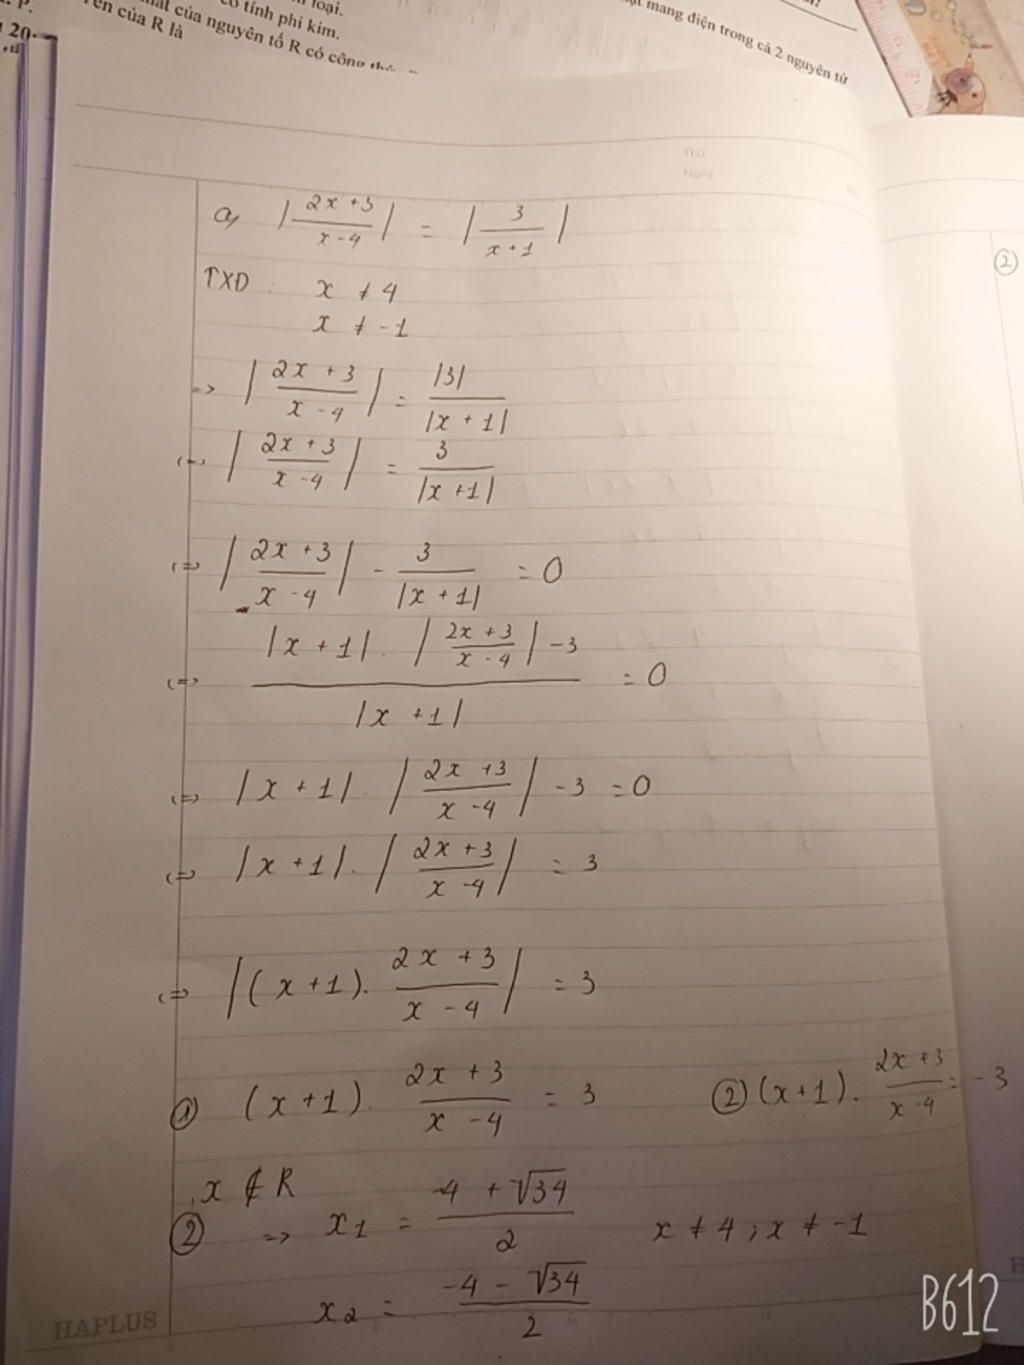 loại.
có tính phi kim.
của nguyên tố R có công
của R là
20.
mang điện trong cả 2 nguyên tử
Thứ
Ngày
a, |(2x + 3)/(x - 4)| = |3/(x + 1)|
TXD: x ≠ 4
x ≠ -1
=> |(2x + 3)/(x - 4)| = |3|/|x + 1|
(=) |(2x + 3)/(x - 4)| = 3/|x + 1|
(=) |(2x + 3)/(x - 4)| - 3/|x + 1| = 0
(=) (|x + 1| . |(2x + 3)/(x - 4)| - 3)/|x + 1| = 0
(=) |x + 1| . |(2x + 3)/(x - 4)| - 3 = 0
(=) |x + 1| . |(2x + 3)/(x - 4)| = 3
(=) |(x + 1) . (2x + 3)/(x - 4)| = 3
① (x + 1) . (2x + 3)/(x - 4) = 3 ② (x + 1) . (2x + 3)/(x - 4) = -3
x ∉ R
② => x1 = (-4 + √34)/2 x ≠ 4 ; x ≠ -1
x2 = (-4 - √34)/2
HAPLUS
②
B612